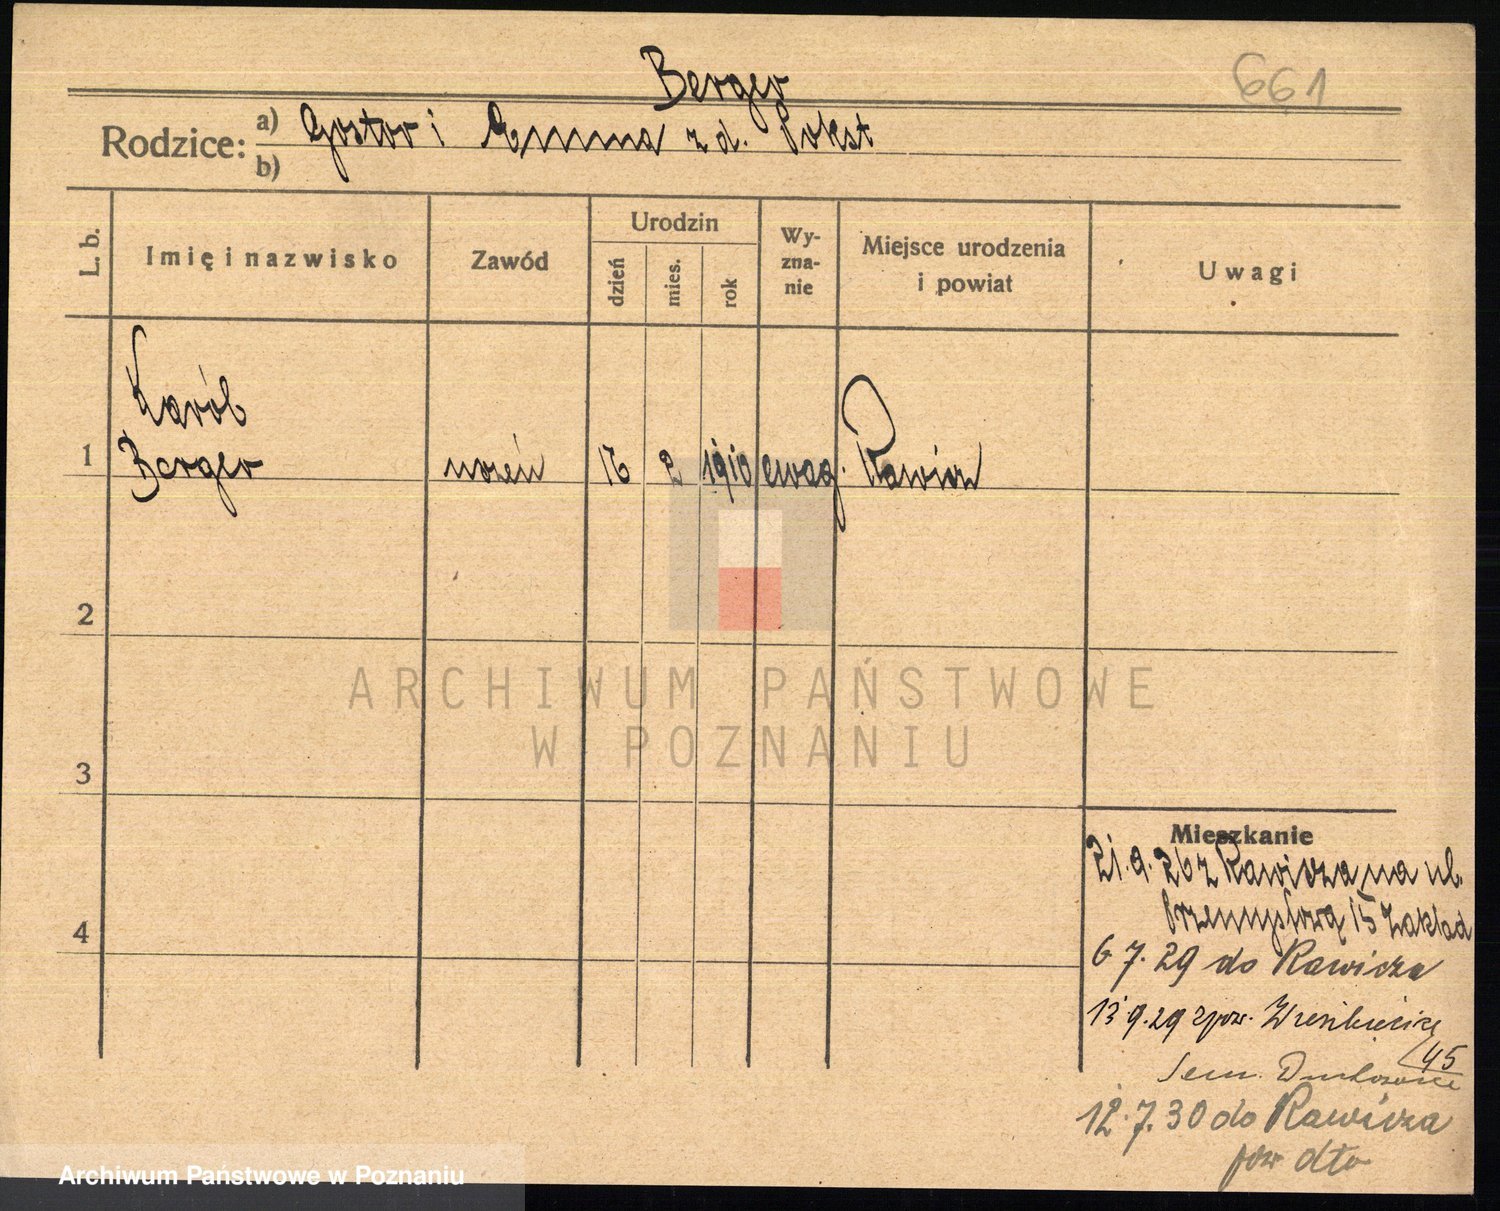 Berger
661
Rodzice: a) Gostor i Emma z d. Pokst
b)
L. b.
Imię i nazwisko
Zawód
Urodzin
dzień
mies.
rok
Wy-
zna-
nie
Miejsce urodzenia
i powiat
Uwagi
Karól
1 Berger uczeń 16 2 1910 ewag. Rawicz
2
3
4
Mieszkanie
21.9.26 z Rawicza na ul.
Przemysłową 15 Zakład
6.7.29 do Rawicza
13.9.29 zpow.
45
Sem. Duchowne
12.7.30 do Rawicza
pow dto
ARCHIWUM PAŃSTWOWE
W POZNANIU
Archiwum Państwowe w Poznaniu